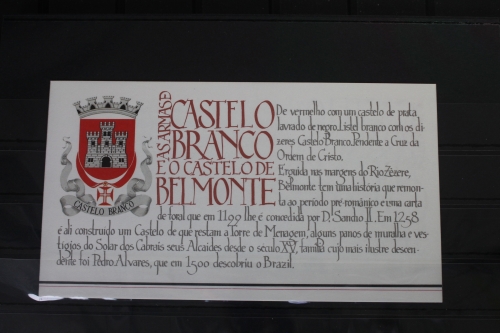 AS ARMAS D
CASTELO
BRANCO
E O CASTELO DE
BELMONTE
CASTELO BRANCO
De vermelho com um castelo de prata
lavrado de negro. Listel branco com os di
zeres Castelo Branco. Pendente a Cruz da
Ordem de Cristo.
Erguida nas margens do Rio Zêzere,
Belmonte tem uma história que remon
ta ao período pré-românico e uma carta
de foral que em 1199 lhe é concedida por D. Sancho II. Em 1258
é ali construído um Castelo de que restam a Torre de Menagem, alguns panos de muralha e ves
tígios do Solar dos Cabrais seus Alcaides desde o século XV, família cujo mais ilustre descen
dente foi Pedro Alvares, que em 1500 descobriu o Brazil.